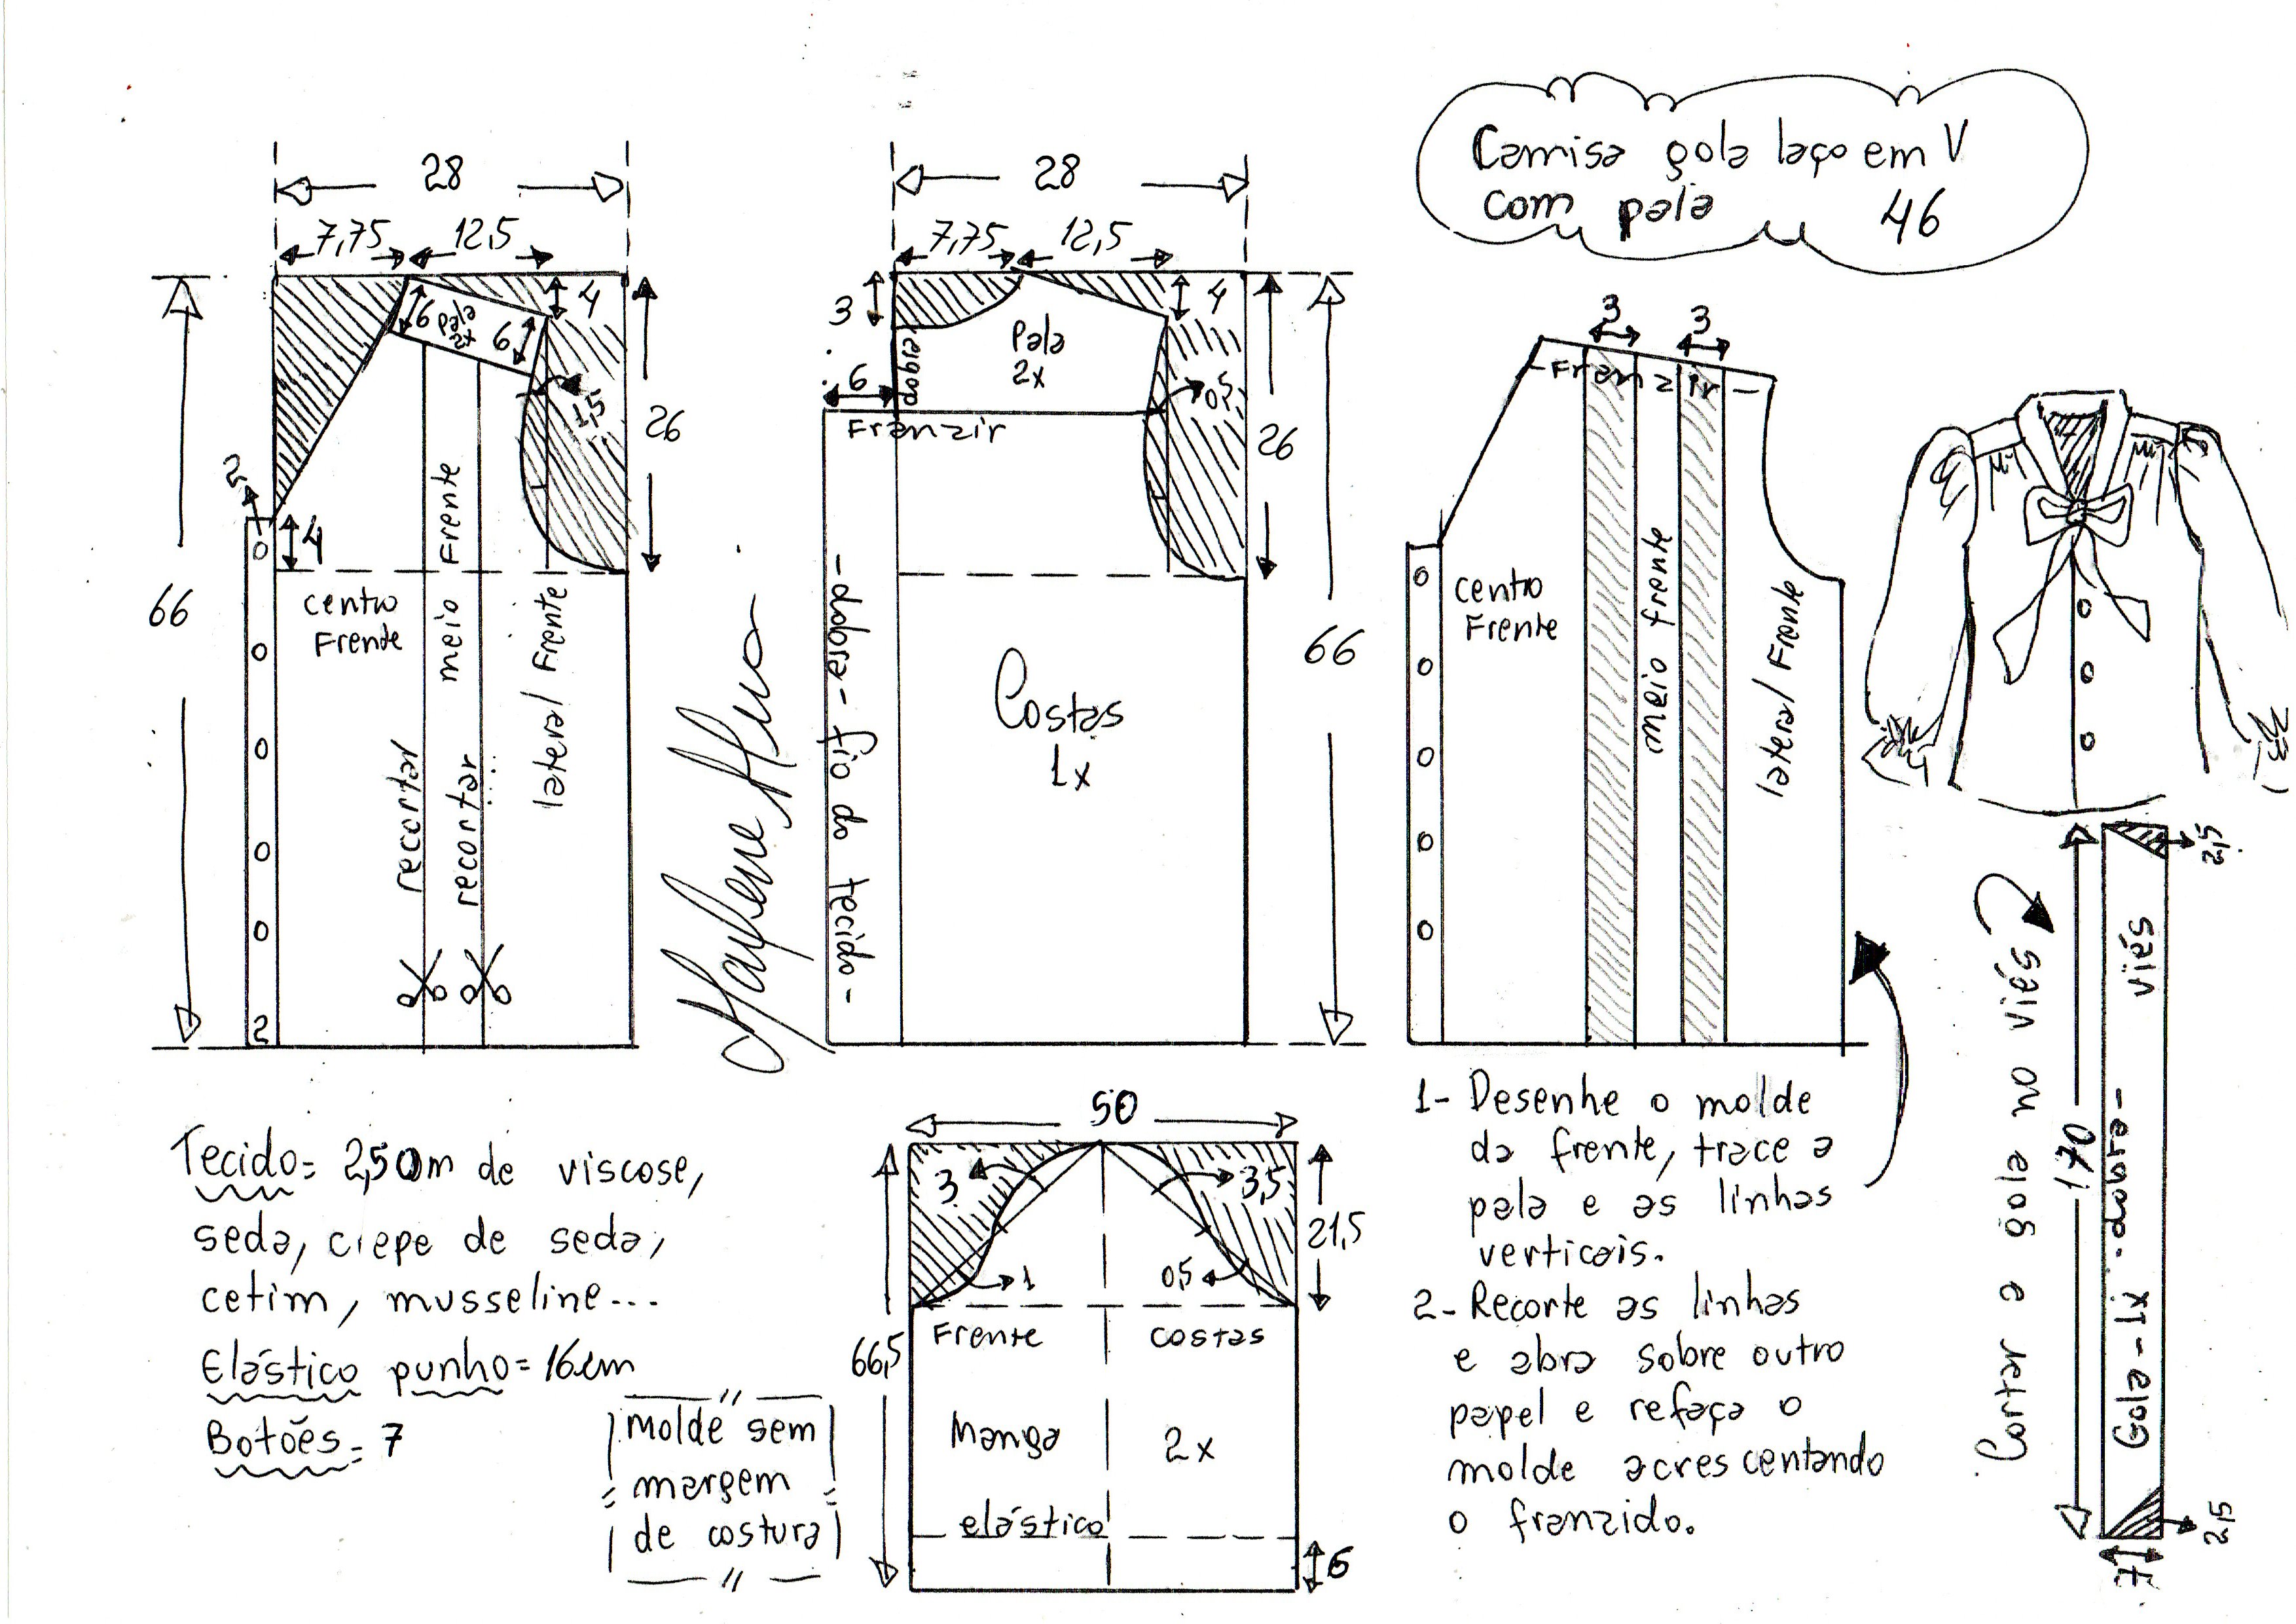 Camisa gola laço em V
com pala 46
28
7,75 12,5
4
6 pala 6
2x
1,5
26
2
4
66
centro
Frente
meio Frente
lateral Frente
recortar
recortar
2
28
7,75 12,5
3
4
dobra
Pala
2x
6
0,5
Franzir
26
66
-dobra- fio do tecido-
Costas
1x
3 3
-Franzir-
centro
Frente
meio frente
lateral Frente
Marlene Mukai
Tecido= 2,50m de viscose,
seda, crepe de seda,
cetim, musseline...
Elástico punho= 16cm
Botões= 7
molde sem
margem
de costura
50
3 3,5
21,5
1 0,5
Frente costas
66,5
Manga 2x
elástico
6
1- Desenhe o molde
da frente, trace a
pala e as linhas
verticais.
2- Recorte as linhas
e abra sobre outro
papel e refaça o
molde acrescentando
o franzido.
Cortar a gola no viés
1,70
Gola - 1x -dobra- viés
2,5
2,5
7